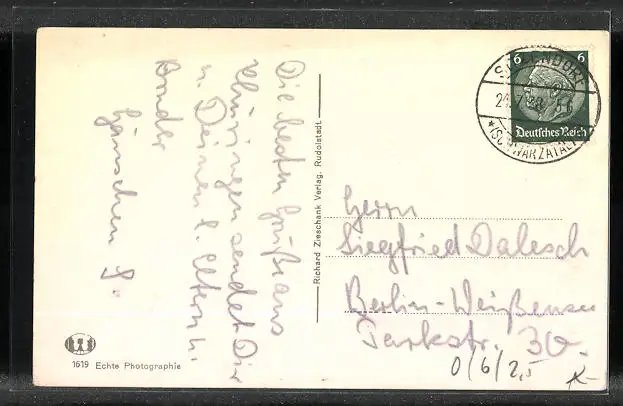 Die besten Grüße aus
Thüringen sendet Dir
u. Deinen l. Eltern u.
Bruder
Hänschen G.
Richard Zieschank Verlag, Rudolstadt.
1619 Echte Photographie
6 6
Deutsches Reich
(SCHWARZATAL)
Herrn
Siegfried Dalesch
Berlin-Weißensee
Parkstr. 30.
0/6/2,5